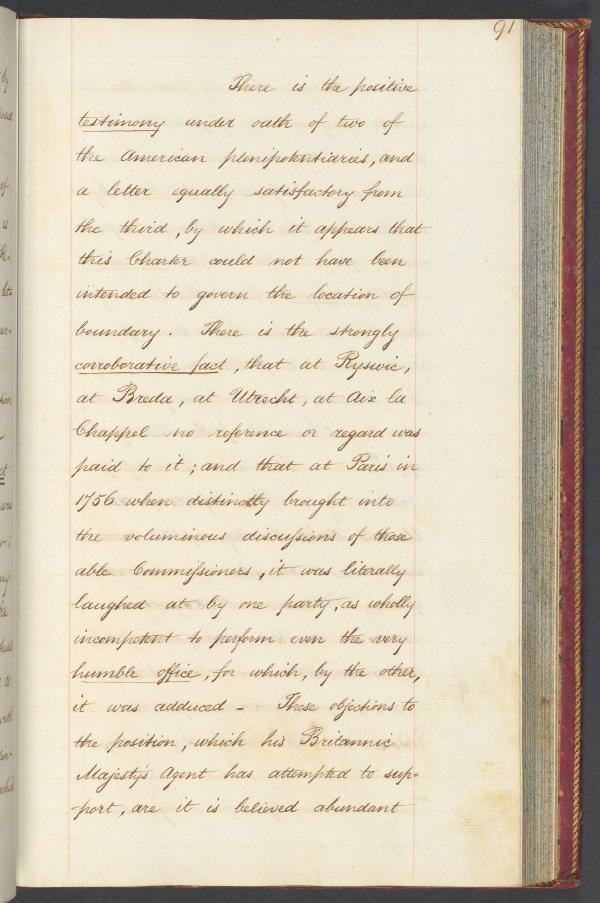 91
There is the positive
testimony under oath of two of
the American plenipotentiaries, and
a letter equally satisfactory from
the third, by which it appears that
this Charter could not have been
intended to govern the location of
boundary. There is the strongly
corroborative fact, that at Ryswic,
at Breda, at Utrecht, at Aix la
Chappel no reference or regard was
paid to it; and that at Paris in
1756 when distinctly brought into
the voluminous discussions of those
able Commissioners, it was literally
laughed at by one party, as wholly
incompetent to perform even the very
humble office, for which, by the other,
it was adduced - These objections to
the position, which his Britannic
Majesty's Agent has attempted to sup-
port, are it is believed abundant